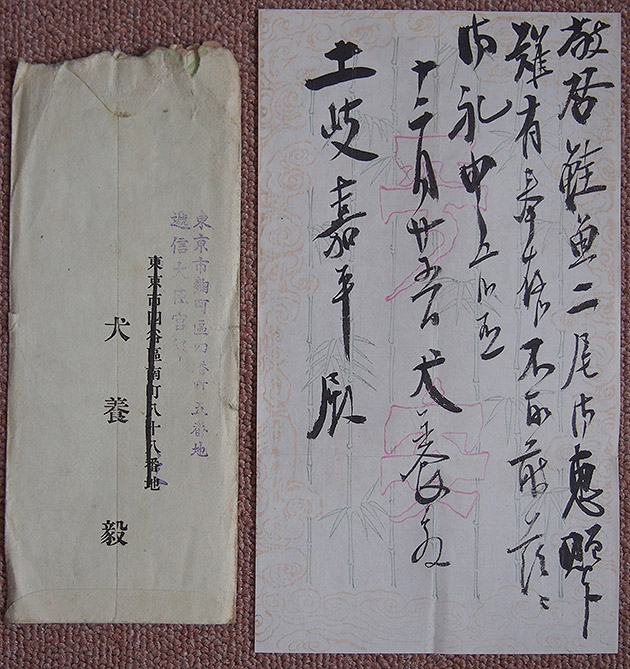 敬啓鮭魚二尾御恵贈下
難有奉存不取敢
御礼申上候
十二月廿五日 犬養毅
土岐嘉平殿
東京市麹町區四番町五番地
遞信大臣官
東京市四谷區南町八十八番地
犬養毅